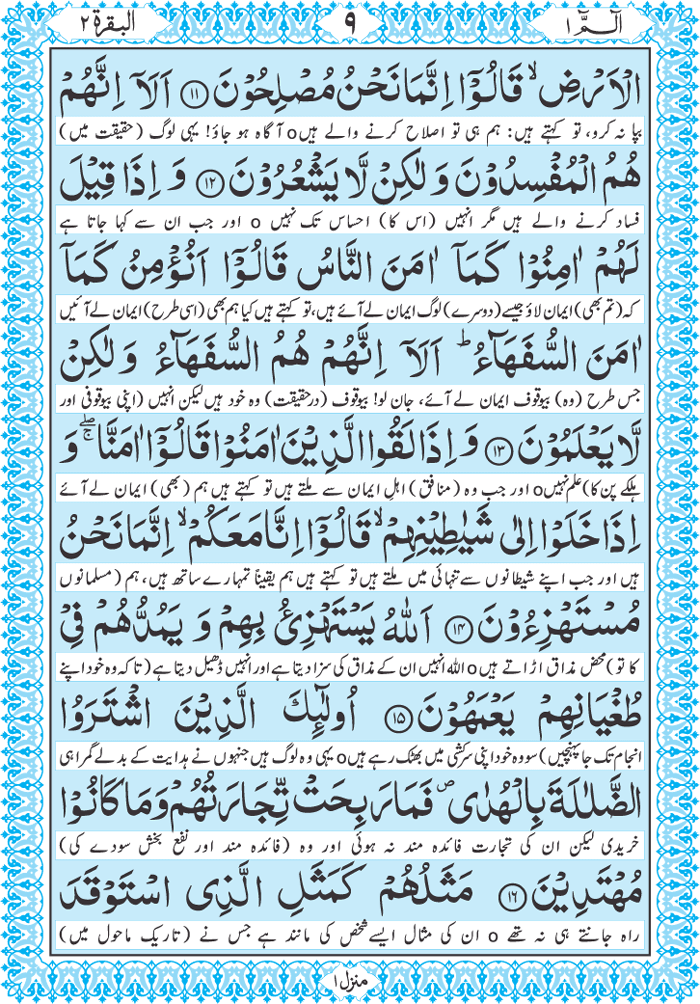 الٓمّٓ ١
٩
البقرة ٢
الْاَرْضِ ۙ قَالُوْۤا اِنَّمَا نَحْنُ مُصْلِحُوْنَ ﴿۱۱﴾ اَلَاۤ اِنَّهُمْ
بپا نہ کرو، تو کہتے ہیں: ہم ہی تو اصلاح کرنے والے ہیںo آگاہ ہو جاؤ! یہی لوگ (حقیقت میں)
هُمُ الْمُفْسِدُوْنَ وَ لٰكِنْ لَّا يَشْعُرُوْنَ ﴿۱۲﴾ وَ اِذَا قِيْلَ
فساد کرنے والے ہیں مگر انہیں (اس کا) احساس تک نہیں o اور جب ان سے کہا جاتا ہے
لَهُمْ اٰمِنُوْا كَمَاۤ اٰمَنَ النَّاسُ قَالُوْۤا اَنُؤْمِنُ كَمَاۤ
کہ (تم بھی) ایمان لاؤ جیسے (دوسرے) لوگ ایمان لے آئے ہیں، تو کہتے ہیں کیا ہم بھی (اسی طرح) ایمان لے آئیں
اٰمَنَ السُّفَهَآءُ ؕ اَلَاۤ اِنَّهُمْ هُمُ السُّفَهَآءُ وَ لٰكِنْ
جس طرح (وہ) بیوقوف ایمان لے آئے، جان لو! بیوقوف (درحقیقت) وہ خود ہیں لیکن انہیں (اپنی بیوقوفی اور
لَّا يَعْلَمُوْنَ ﴿۱۳﴾ وَ اِذَا لَقُوا الَّذِيْنَ اٰمَنُوْا قَالُوْۤا اٰمَنَّا ۖۚ وَ
ہلکے پن کا) علم نہیںo اور جب وہ (منافق) اہلِ ایمان سے ملتے ہیں تو کہتے ہیں ہم (بھی) ایمان لے آئے
اِذَا خَلَوْا اِلٰى شَيٰطِيْنِهِمْ ۙ قَالُوْۤا اِنَّا مَعَكُمْ ۙ اِنَّمَا نَحْنُ
ہیں اور جب اپنے شیطانوں سے تنہائی میں ملتے ہیں تو کہتے ہیں ہم یقیناً تمہارے ساتھ ہیں، ہم (مسلمانوں
مُسْتَهْزِءُوْنَ ﴿۱۴﴾ اَللّٰهُ يَسْتَهْزِئُ بِهِمْ وَ يَمُدُّهُمْ فِيْ
کا تو) محض مذاق اڑاتے ہیںo اللہ انہیں ان کے مذاق کی سزا دیتا ہے اور انہیں ڈھیل دیتا ہے (تاکہ وہ خود اپنے
طُغْيَانِهِمْ يَعْمَهُوْنَ ﴿۱۵﴾ اُولٰٓئِكَ الَّذِيْنَ اشْتَرَوُا
انجام تک جا پہنچیں) سو وہ خود اپنی سرکشی میں بھٹک رہے ہیںo یہی وہ لوگ ہیں جنہوں نے ہدایت کے بدلے گمراہی
الضَّلٰلَةَ بِالْهُدٰى ۪ فَمَا رَبِحَتْ تِّجَارَتُهُمْ وَ مَا كَانُوْا
خریدی لیکن ان کی تجارت فائدہ مند نہ ہوئی اور وہ (فائدہ مند اور نفع بخش سودے کی)
مُهْتَدِيْنَ ﴿۱۶﴾ مَثَلُهُمْ كَمَثَلِ الَّذِي اسْتَوْقَدَ
راہ جانتے ہی نہ تھے o ان کی مثال ایسے شخص کی مانند ہے جس نے (تاریک ماحول میں)
منزل ۱